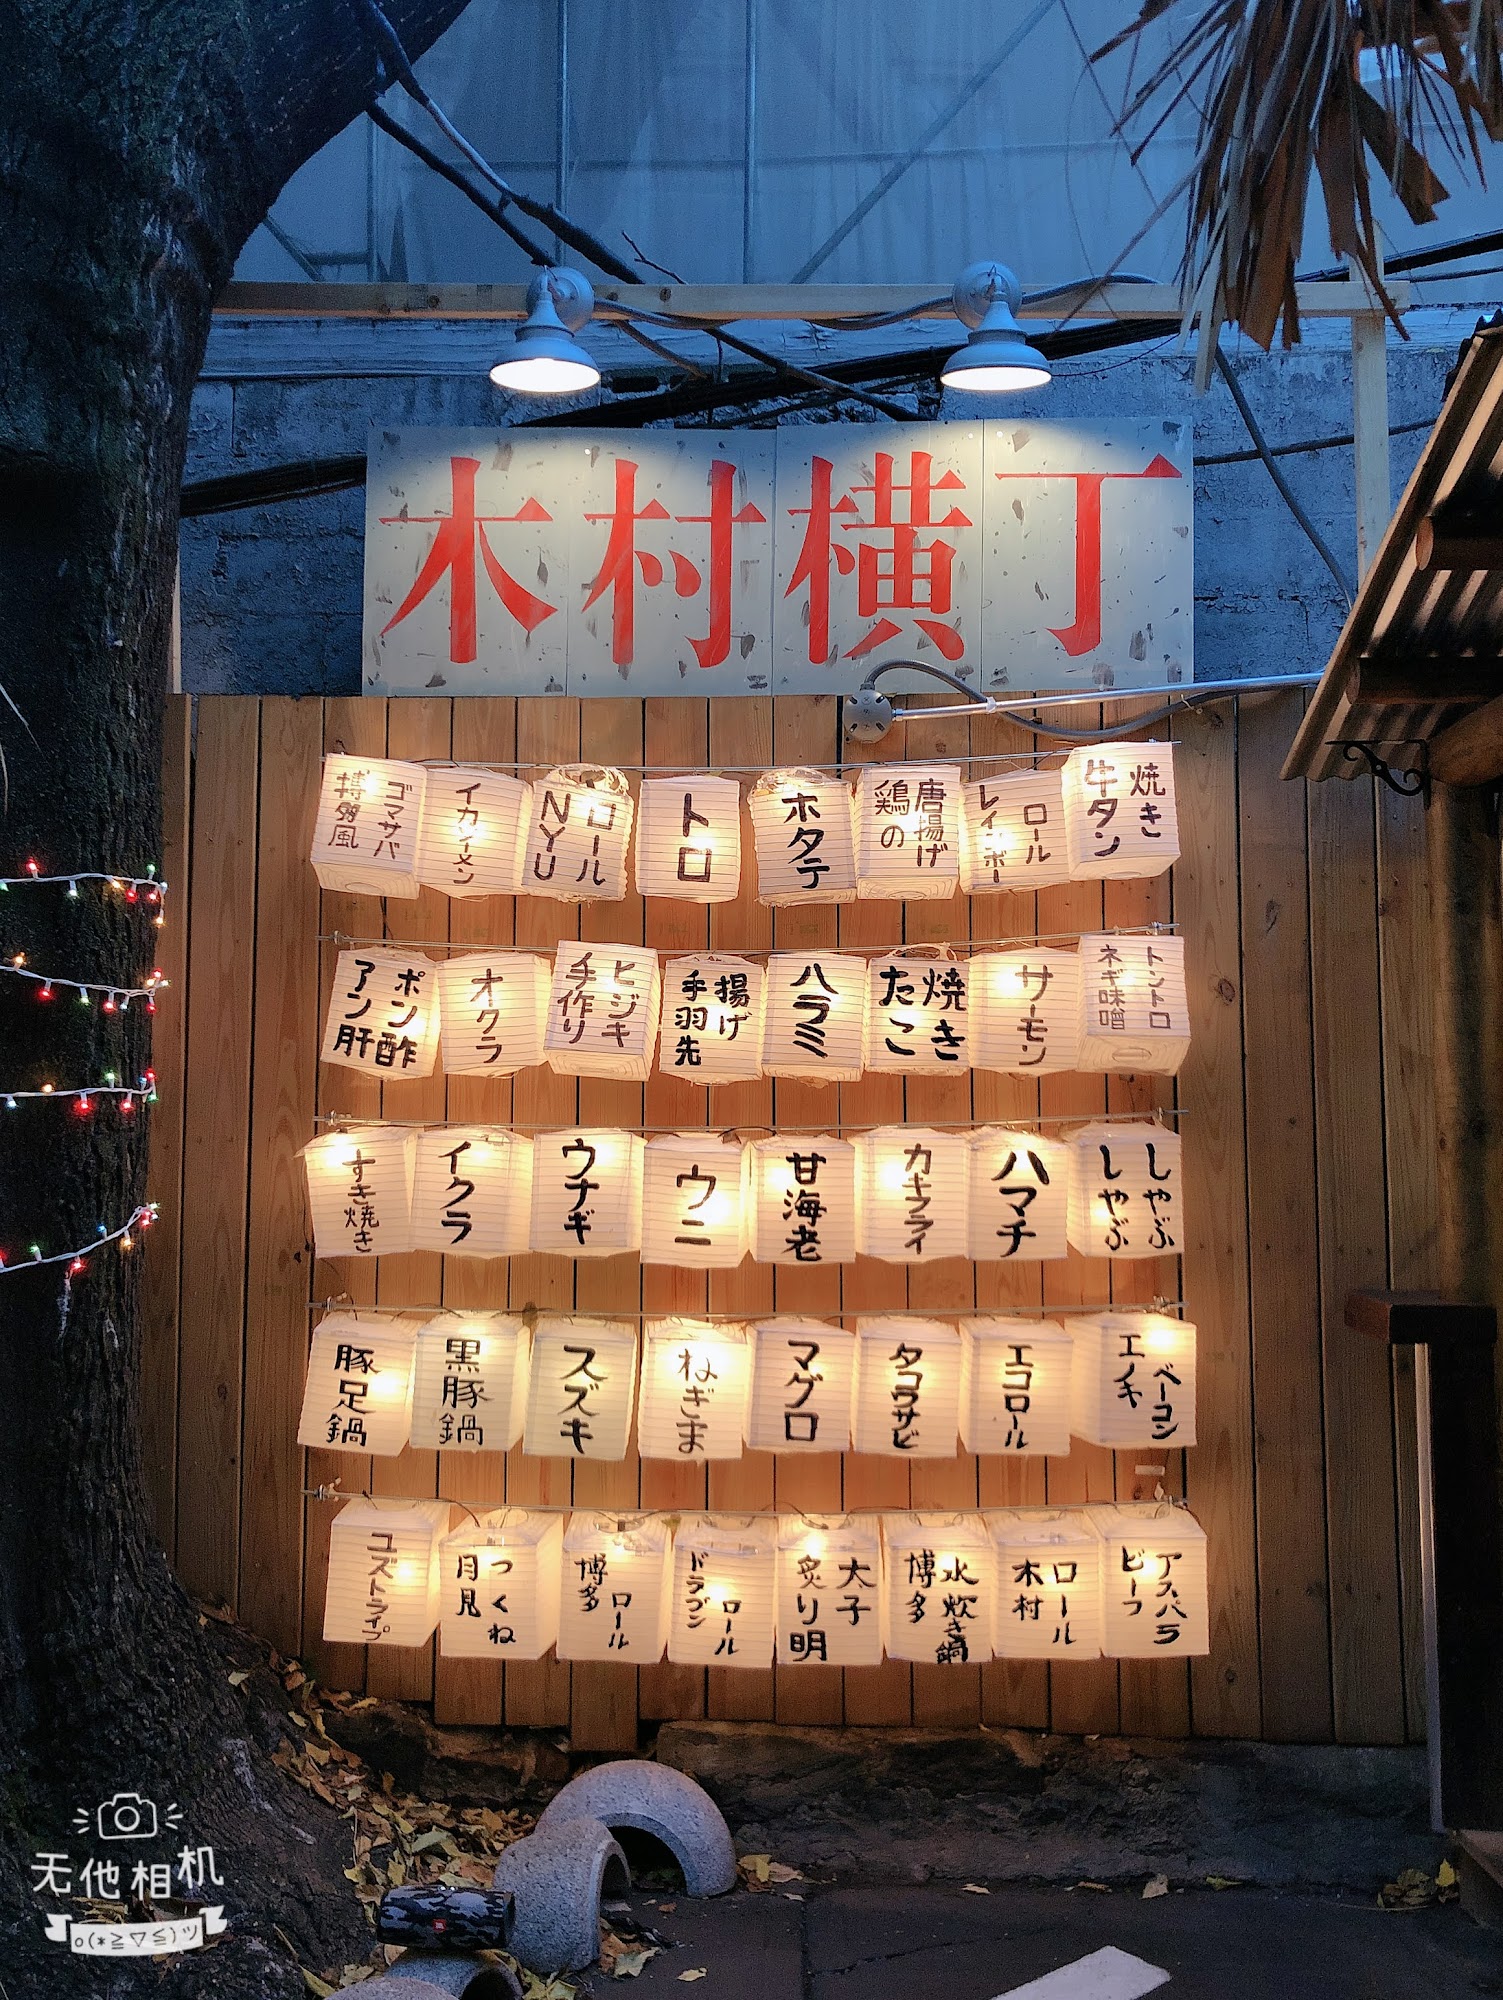 木村横丁
ゴマサバ
博多風
イカソーメン
ロール
NYU
トロ
ホタテ
唐揚げ
鶏の
ロール
レインボー
焼き
牛タン
ポン酢
アン肝
オクラ
ヒジキ
手作り
揚げ
手羽先
ハラミ
焼き
たこ
サーモン
トントロ
ネギ味噌
すき焼き
イクラ
ウナギ
ウニ
甘海老
カキフライ
ハマチ
しゃぶ
しゃぶ
豚足鍋
黒豚鍋
スズキ
ねぎま
マグロ
タコワサビ
エコロール
ベーコン
エノキ
ユズトライプ
つくね
月見
ロール
博多
ロール
ドラゴン
太子
炙り明
水炊き鍋
博多
ロール
木村
アスパラ
ビーフ
无他相机
o(*≧▽≦)ツ
JBL